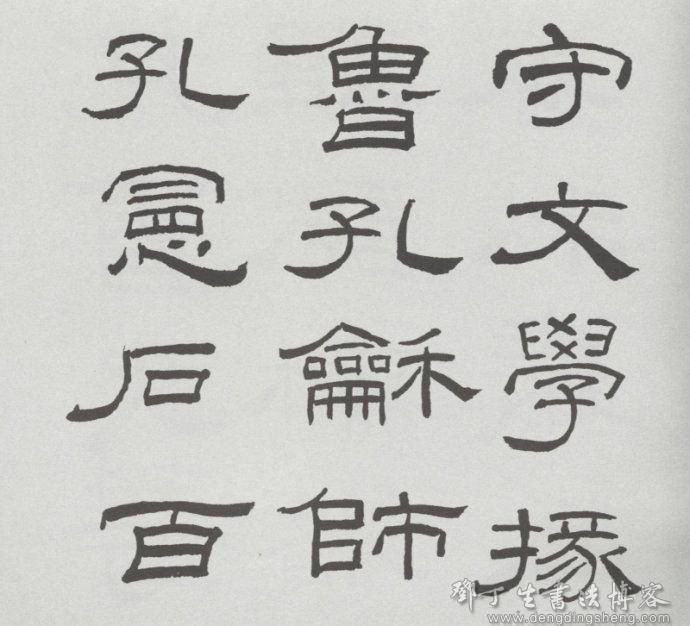 守文學掾
魯孔龢師
孔憲石百
鄧丁生書法博客
www.dengdingsheng.com